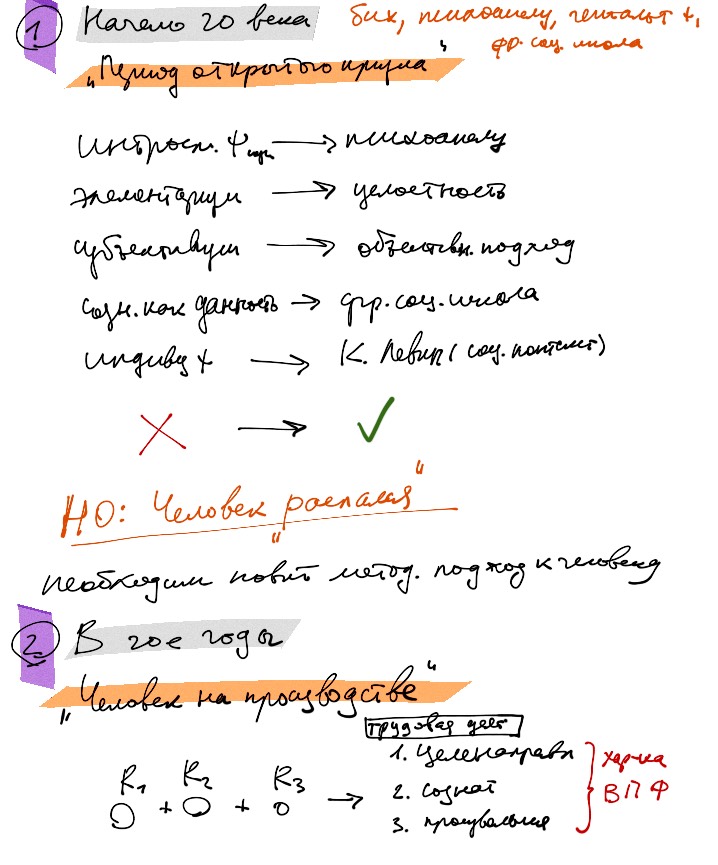 1 Начало 20 века
бих, психоанализ, гештальт +, фр. соц. школа
„Период открытого кризиса“
интросп. Ψ → психоанализ
элементаризм → целостность
субъективизм → объективн. подход
созн. как данность → фр. соц. школа
индивид + → К. Левин (соц. контекст)
✗ → ✓
НО: Человек „распался“
необходим новый метод. подход к человеку
2. В 20е годы
„Человек на производстве“
трудовая деят
R1 + R2 + R3 →
1. Целенаправл
2. сознат
3. произвольная
хар-ка ВПФ